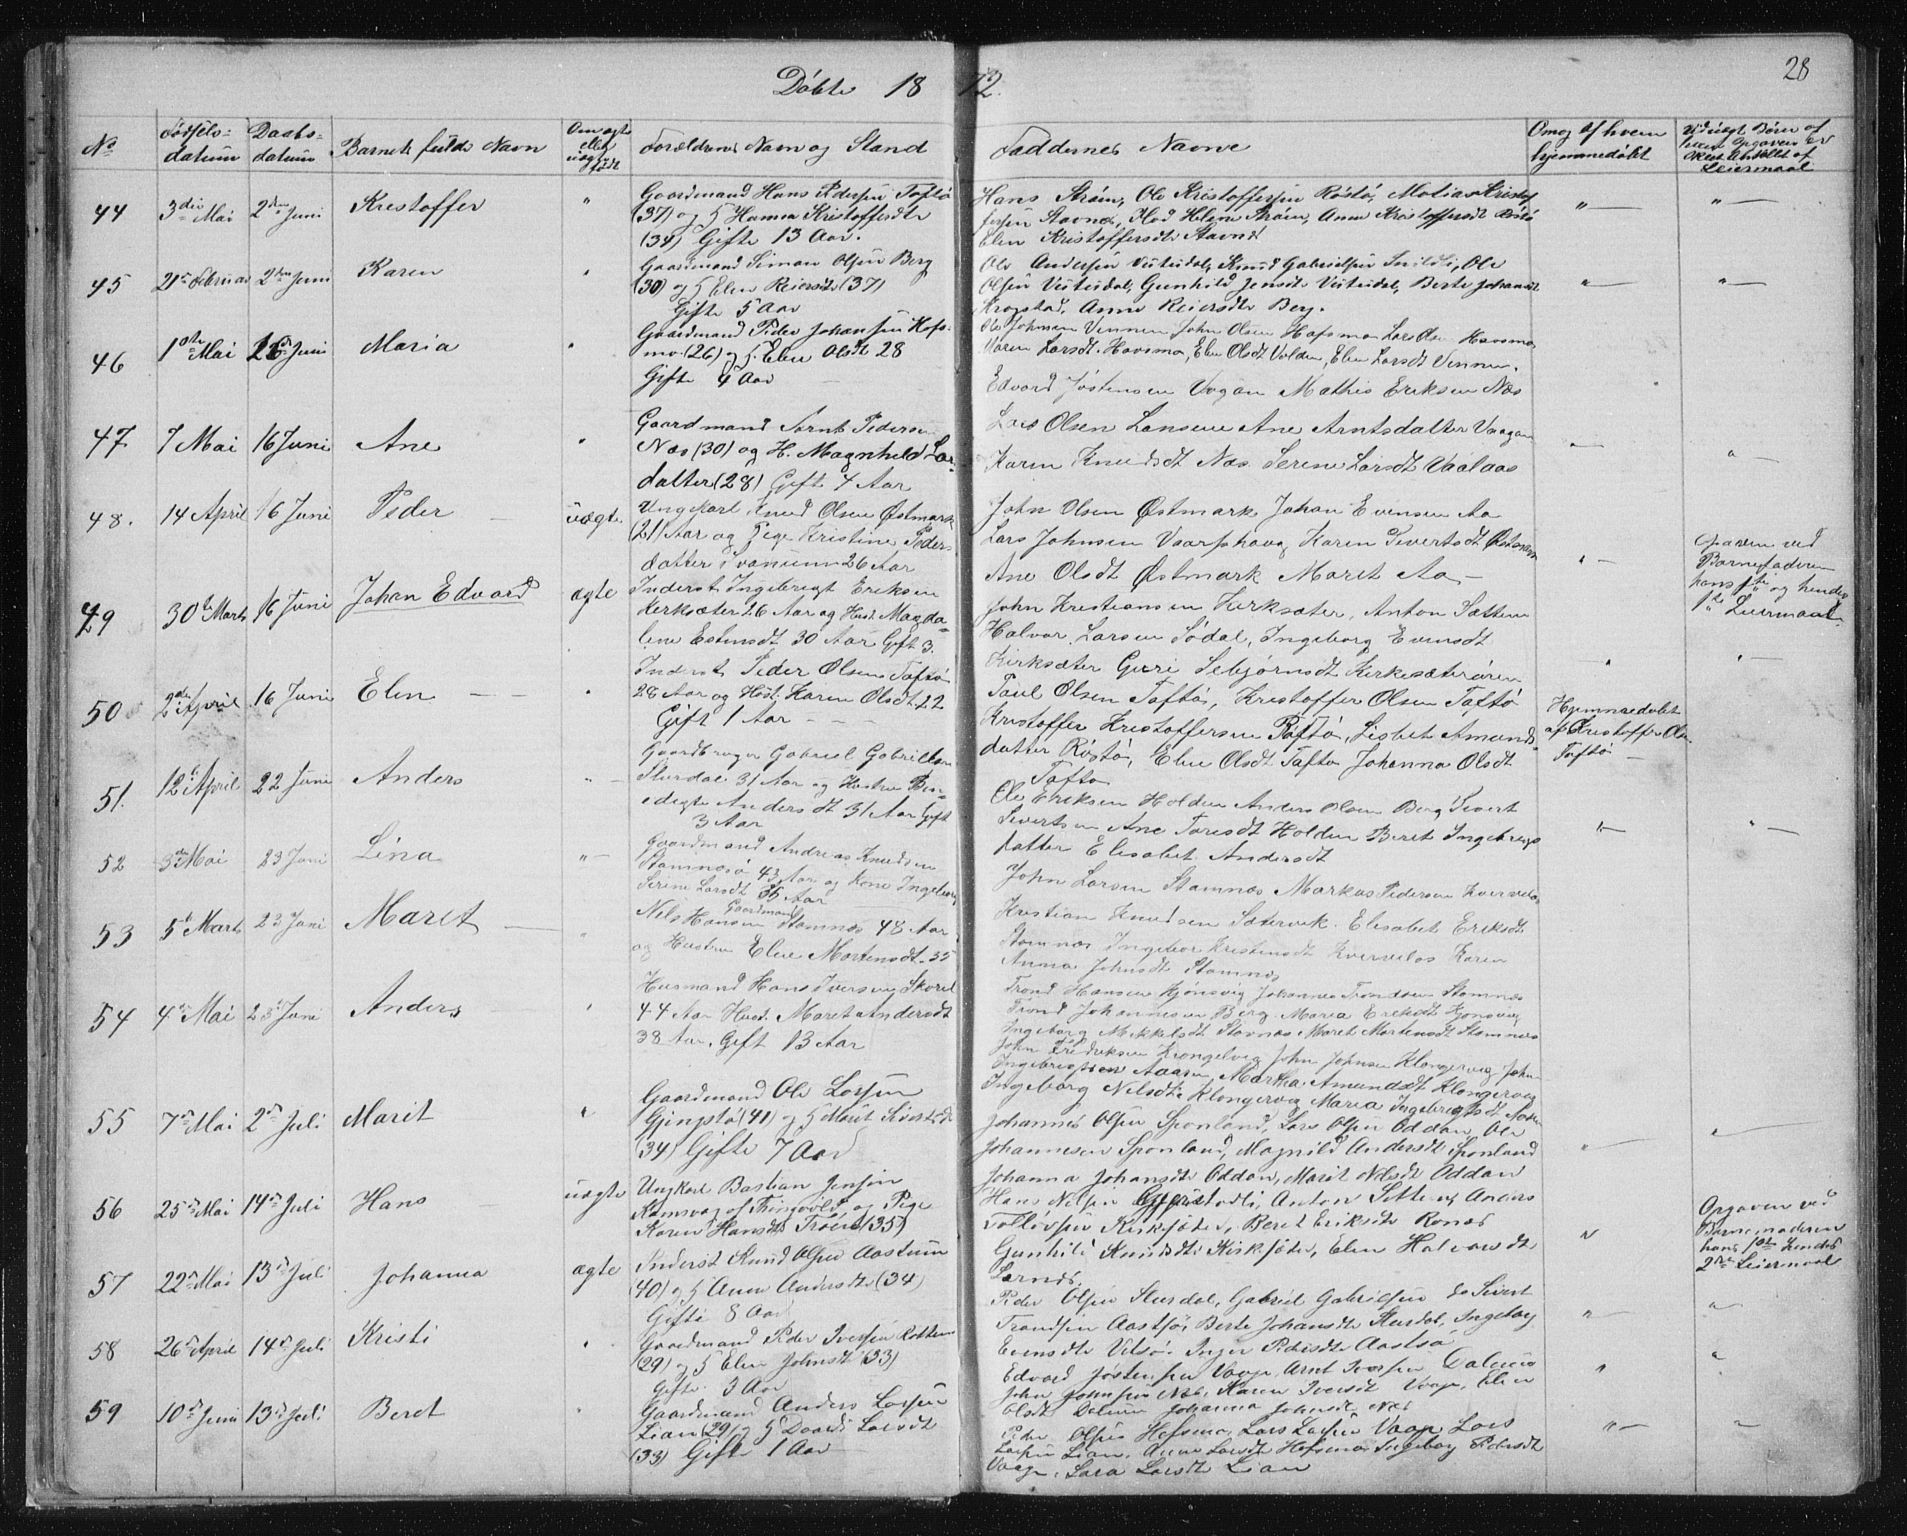 Døbte 1872.
28
No
Fødsels-datum
Daabs-datum
Barnets fulde Navn
Om ægte eller uægte født
Forældrenes Navn og Stand
Faddernes Navne
Om og af hvem hjemmedøbt
Leiermaal
44 3die Mai 2den Juni Kristoffer "
Gaardmand Hans Pedersen Taftø
(37) og H Hanna Kristoffersdtr
(34) Gifte 13 Aar.
Hans Strøm, Ole Kristoffersen Røstø, Matias Kristof
fersen Stavnes, Mad Helene Strøm, Anne Kristoffersdt Røstø
Elen Kristoffersdtr Stavnes
45 21de Februar 2den Juni Karen "
Gaardmand Simon Olsen Berg
(30) og H Elen Reiersdtr (37)
Gifte 5 Aar
Ole Andersen Vuttudal, Knud Gabrielsen, Ole
Olsen Vuttudal, Gunhild Jensdtr Vuttudal, Berte Johansdt
Krogstad, Anne Reiersdtr Berg.
46 1ste Mai 26de Juni Maria "
Gaardmand Peder Johansen Hafs-
mo (26) og H. Elen Olsdt 28
Gifte 4 Aar
Ole Johnsen Vennen John Olsen Hafsmo Lars Olsen Havsmo
Maren Larsdt. Havsmo, Elen Olsdt Volden, Elen Larsdt Vennen.
47. 7 Mai 16 Juni Ane "
Gaardmand Arnt Pedersen
Næs (30) og H. Magnhild Lar-
datter (28) Gift 4 Aar
Edvard Jostensen Vagan Mathis Eriksen Næs
Lars Olsen Lansem Ane Arntsdatter Vaagan
Karen Knudsdt Næs Serene Larsdt Vaalaas
48. 14 April 16 Juni Peder uægte
Ungkarl Knud Olsen Østmark
(21) Aar og Pige Kristine Peders
datter Svanem 26 Aar
John Olsen Østmark Johan Evensen Aa
Lars Johnsen Vaarshaug Karen Sivertsdt Østmark
Ane Olsdt Østmark Maret Aa
Opgaven ved
Barnefaderen
hans 1ste og hendes
1ste Leiermaal
49 30te Marts 16 Juni Johan Edvard ægte
Inderst Ingebrigt Eriksen
Kerksæter 26 Aar og Hust. Magda-
lene Estensdt 30 Aar Gift 3.
John Kristiansen Kirksæter, Anton Sættem
Halvor Larsen Sødal, Ingeborg Evensdt
Kirksæter Guri Sebjørnsdt Kirkesæterøren
50 2den April 16 Juni Elen "
Inderst Peder Olsen Taftø
28 Aar og Hust. Karen Olsdt 22
Gift 1 Aar
Paul Olsen Taftø, Kristoffer Olsen Taftø
Kristoffer Kristoffersen Røstø, Lisbet Amunds
datter Røstø, Eline Olsdt Taftø Johanna Olsdt
Taftø
Hjemmedøbt
af Kristoffer Olsen
Taftø
51. 12te April 22 Juni Anders "
Gaardbruger Gabriel Gabrielsen
Slurdal 31 Aar og Hustru Ben-
edigte Andersdt 31 Aar Gift
3 Aar
Ole Eriksen Holden Anders Olsen Berg Sivert
Sivertsen Ane Toresdt Holden Beret Ingebrigts
datter Elisabet Andersdt
52 3die Mai 23 Juni Lina "
Gaardmand Andreas Knudsen
Stamnesø 43 Aar og Kone Ingeborg
Serine Larsdt 36 Aar
John Larsen Stamnæs Markus Pedersen Kvervelos
Kristian Knudsen Sætervik. Elisabet Eriksdt
Stamnæs Ingebor Kristensdt Kvervelos Karen
Anna Johnsdt Stamnes
53 5te Marts 23 Juni Maret "
Gaardmand
Nils Hansen Stamnæs 48 Aar
og Hustru Elen Mortensdt. 35
Trond Hansen Kjønsvig Johannes Trondsen Stamnæs
Trond Johannesen Berg Maria Eriksdt Kjønsvig
Ingeborg Mikkelsdt Stamnæs Maret Mortensdt Stamnæs
54 4de Mai 23 Juni Anders "
Husmand Hans Iversen Skarel
44 Aar Hust. Maret Andersdt
38 Aar. Gift 13 Aar
John Fredriksen Krongelvog John Johnsen Klongervog John
Ingebrigtsen Aasen Martha Amundsdt Klongervog
Ingeborg Nilsdtr Klongervog Maria Ingebrigtsdt Aasen
55 7de Mai 2de Juli Marit "
Gaardmand Ole Larsen
Gjengstø (41) og H Marit Siverts dt
(34) Gifte 7 Aar
Johannes Olsen Sponland, Lars Olsen Oddan, Ole
Johannesen Sponland, Magnild Andersdt Sponland
Johanna Johansdt Oddan, Marit Nilsdt Oddan
56 25de Mai 14de Juli Hans uægte
Ungkarl Bastian Jensen
Ramsvog af Thingvold og Pige
Karen Hansdt Trøen (35)
Hans Nilsen Gjeristadli, Anton Sitter og Anders
Tolløvsen Kirksæter, Beret Eriksdtr Ronæs
Gunhild Knudsdtr Kirksæter, Elen Halvorsdt
Lernes.
Opgaven ved
Barnemoderen
hans 1ste hendes
2de Leiermaal
57 22de Mai 13de Juli Johanna ægte
Inderst Knud Olsen Aastum
(40) og H Anne Andersdtr (34)
Gifte 8 Aar
Peder Olsen Slurdal, Gabriel Gabrielsen do Sivert
Trondsen Aastsø, Berte Johansdtr Slurdal, Ingeborg
Evensdtr Vilsø. Inger Pedersdtr Aastsø
58 26de April 14de Juli Kristi "
Gaardmand Peder Iversen Rottem
(29) og H Elen Johnsdt (33)
Gifte 3 Aar
Edvard Jøstensen Vaage, Arnt Iversen Dalum
John Johnsen Næs, Karen Iversdt Vaage, Elen
Olsdt Dalum Johanna Johnsdt Næs
59 10de Juni 13de Juli Beret "
Gaardmand Anders Larsen
Lian (29) og H Dordi Larsdt
(33) Gift 1 Aar
Peder Olsen Hafsmo, Lars Larsen Vaage Lars
Larsen Lian, Anne Larsdt Hafsmo, Ingeborg Pedersdt
Vaage, Sara Larsdt Lian